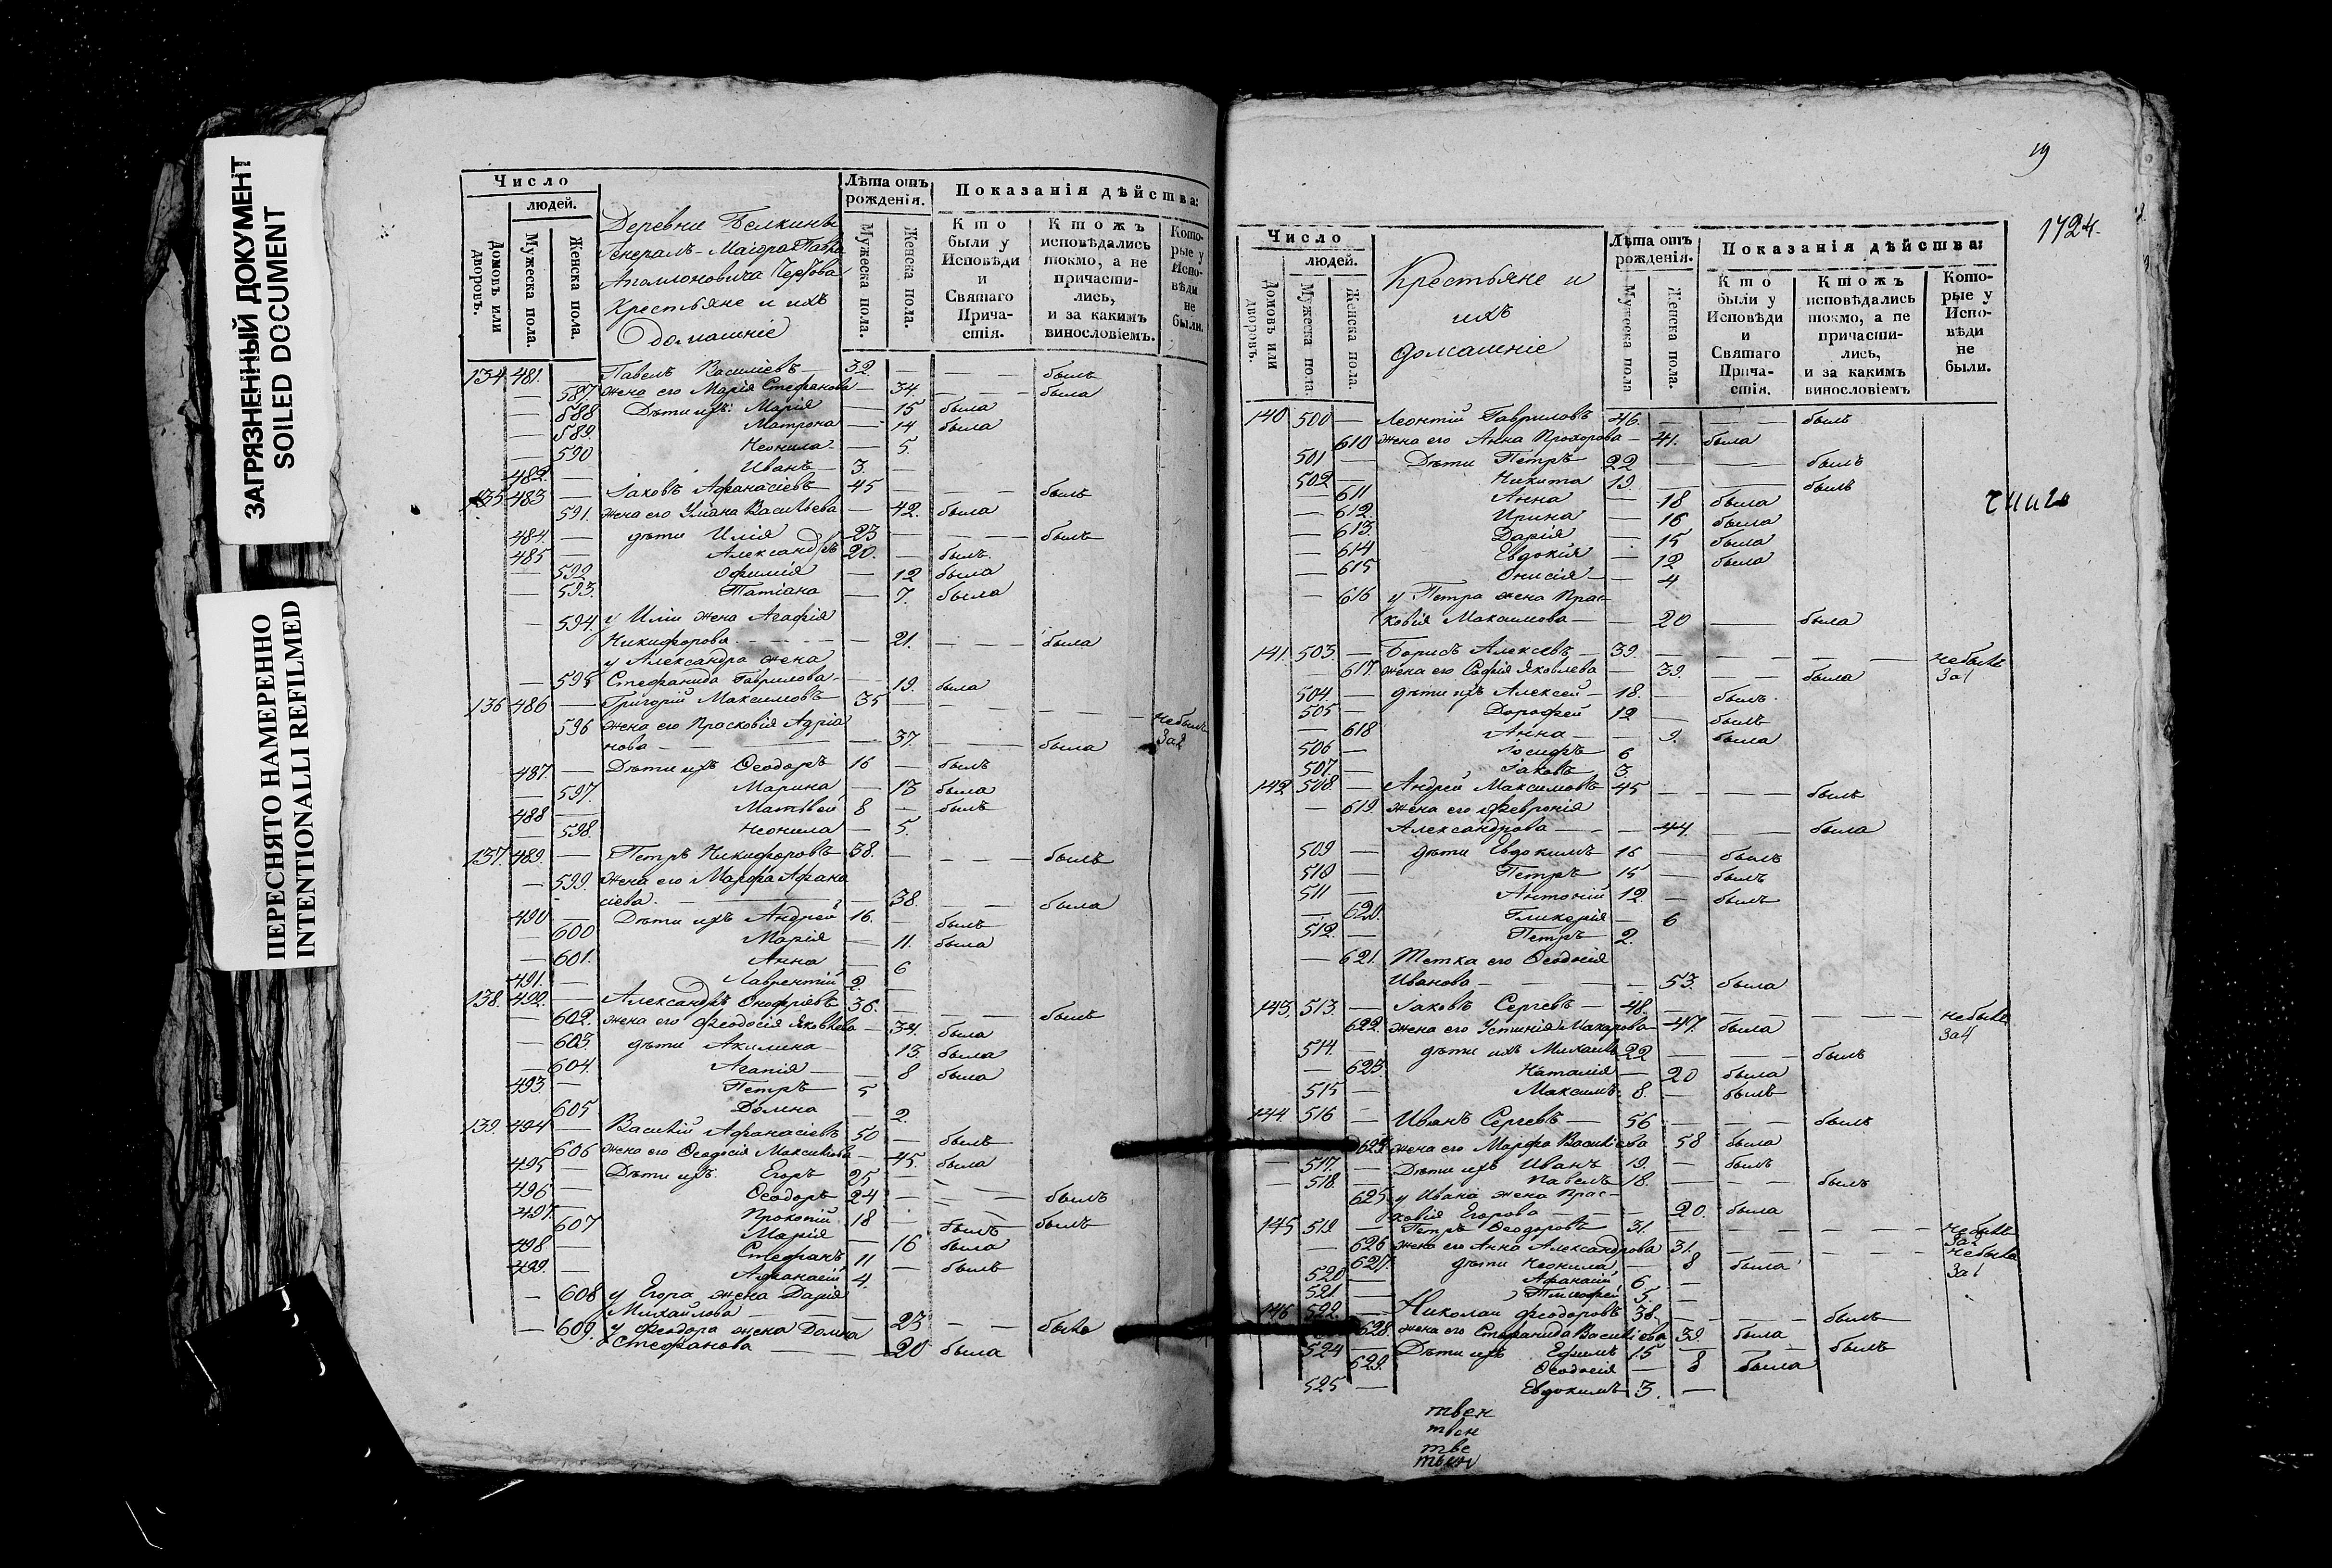 ЗАГРЯЗНЕННЫЙ ДОКУМЕНТ
SOILED DOCUMENT
ПЕРЕСНЯТО НАМЕРЕННО
INTENTIONALLI REFILMED
Число
людей.
Домовъ или дворовъ.
Мужеска пола.
Женска пола.
Деревни Белкинъ
Генералъ-Маіора Павла
Агамоновича Чертова
Крестьяне и ихъ
Домашніе
Лѣта отъ рожденія.
Мужеска пола.
Женска пола.
Показанія дѣйства:
Кто были у Исповѣди и Святаго Прича-стія.
Ктожъ исповѣдались токмо, а не причасти-лись, и за какимъ винословіемъ.
Кото-рые у Испо-вѣди не были.
134 481. Павелъ Василіевъ 32 — — — былъ
— 587 жена его Марія Стефанова — 34 — — была
— 588 Дѣти ихъ: Марія — 15 была
— 589. Матрона — 14 была
— 590 Неонила — 5.
482. — Иванъ — 3. —
135 483 — Іаковъ Афанасіевъ — 45 — — — былъ
591. жена его Уліана Васильева — 42. была
484. — дѣти Илія — 23 — — — былъ
485 — Александръ 20. — былъ.
— 592 Офимія — 12 была
— 593. Татіана — 7. была
— 594. у Иліи жена Агафія
Никифорова — — — — 21. — — — была
у Александра жена
— 595 Стефанида Гаврилова — 19. была
136 486 — Григорій Максимовъ 35 — — — — небылъ За2
596 жена его Прасковія Адріа
нова — — — 37. — — была
487. — Дѣти ихъ Ѳеодоръ 16 — былъ
— 597. Марина — 13 была
488 — Матѳей 8 — былъ
— 598. Неонила — 5.
137. 489. — Петръ Никифоровъ 38. — — — — былъ
— 599. жена его Марфа Афана
сіева. — — 38. — — была
490 — Дѣти ихъ Андрей 16. былъ
— 600 Марія — 11. была
— 601. Анна — 6
491. — Лаврентій 2. —
138. 492. — Александръ Онофріевъ 36. — — — былъ
602. жена его Феодосія Яковлева — 34. была
— 603. дѣти Акилина — 13. была
— 604. Агапія — — 8 была
493. — Петръ — 5
605 Домна — 2.
139. 494 — Василій Афанасіевъ 50 — былъ
606 жена его Ѳеодосія Максимова — 45. была
495 — Дѣти ихъ. Егоръ 25 —
496 — Ѳеодоръ 24 — — — былъ
497. Прокопій 18 — былъ былъ
607 Марія — 16 была
498 — Стефанъ 11 — былъ
499. — Афанасій 4.
— 608 у Егора жена Дарія
Михайлова — — — 23 — — была
— 609. у Феодора жена Домна
Стефанова — — 20 была
19
1724.
Число
людей.
Домовъ или дворовъ.
Мужеска пола
Женска пола.
Крестьяне и
ихъ
домашніе
Лѣта отъ рожденія.
Мужеска пола
Женска пола.
Показанія дѣйства:
Кто были у Исповѣди и Святаго Прича-стія.
Ктожъ исповѣдались токмо, а не причасти-лись, и за какимъ винословіемъ
Кото-рые у Испо-вѣди не были.
140 500 — Леонтій Гавриловъ 46. — — — былъ
610 жена его Анна Прохорова — 41. была
501 — Дѣти Петръ 22 — — былъ
502 Никита 19. — — былъ
— 611 Анна — 18 была
— 612. Ирина — 16 была
— 613. Дарія — 15 была
— 614 Евдокія — 12 была
— 615 Онисія — — 4
— 616 у Петра жена Прас-
ковія Максимова — — 20 — была
141. 503. — Борисъ Алексѣевъ — 39. — — — — небылъ За1
617. жена его Софія Яковлева — 39. — — была
504. — дѣти ихъ Алексей — 18. — былъ.
505 — Дорофей 12 — былъ
— 618 Анна — — 9. была
506 — Іосифъ 6
507. — Іаковъ 3.
142 508. — Андрей Максимовъ 45 — — — былъ
— 619. жена его Февронія
Александрова — — — 44 — — была
509 — дѣти Евдокимъ 16 — былъ
510 — Петръ 15 — былъ
511 — Антоній 12. — былъ
— 620. Гликерія — 6
512. — Петръ — 2.
— 621. Тетка его Ѳеодосія
Иванова — — — — 53. была
143. 513. — Іаковъ Сергѣевъ — 48. — — — — небылъ За4
622. жена его Устинія Макарова — 47. была
514. — дѣти ихъ Михаилъ 22 — — — былъ
— 623. Наталія — 20 была
515 — Максимъ 8. — былъ
144. 516 — Иванъ Сергѣевъ — 56 — — — былъ
624. жена его Марфа Василіева 58 была
— 517. — Дѣти ихъ Иванъ 19. — былъ
— 518. — Павелъ 18. — — — былъ
625. у Ивана жена Прас-
ковія Егорова — — — 20. была
145 519 — Петръ Ѳеодоровъ 31. — — — — небылъ За2
— 626 жена его Анна Александрова 31. — — — — небыла За1
627. дѣти Неонила — 8 была
520 — Афанасій 6 —
521. — Тимофей 5. —
146 522. — Николай Феодоровъ 38. — — — — былъ
628. жена его Стефанида Василіева 39. была
524 — Дѣти ихъ Ефимъ 15 — — былъ
629. Ѳеодосія — 8 была
525 — Евдокимъ 3. —
твен
твен
тве